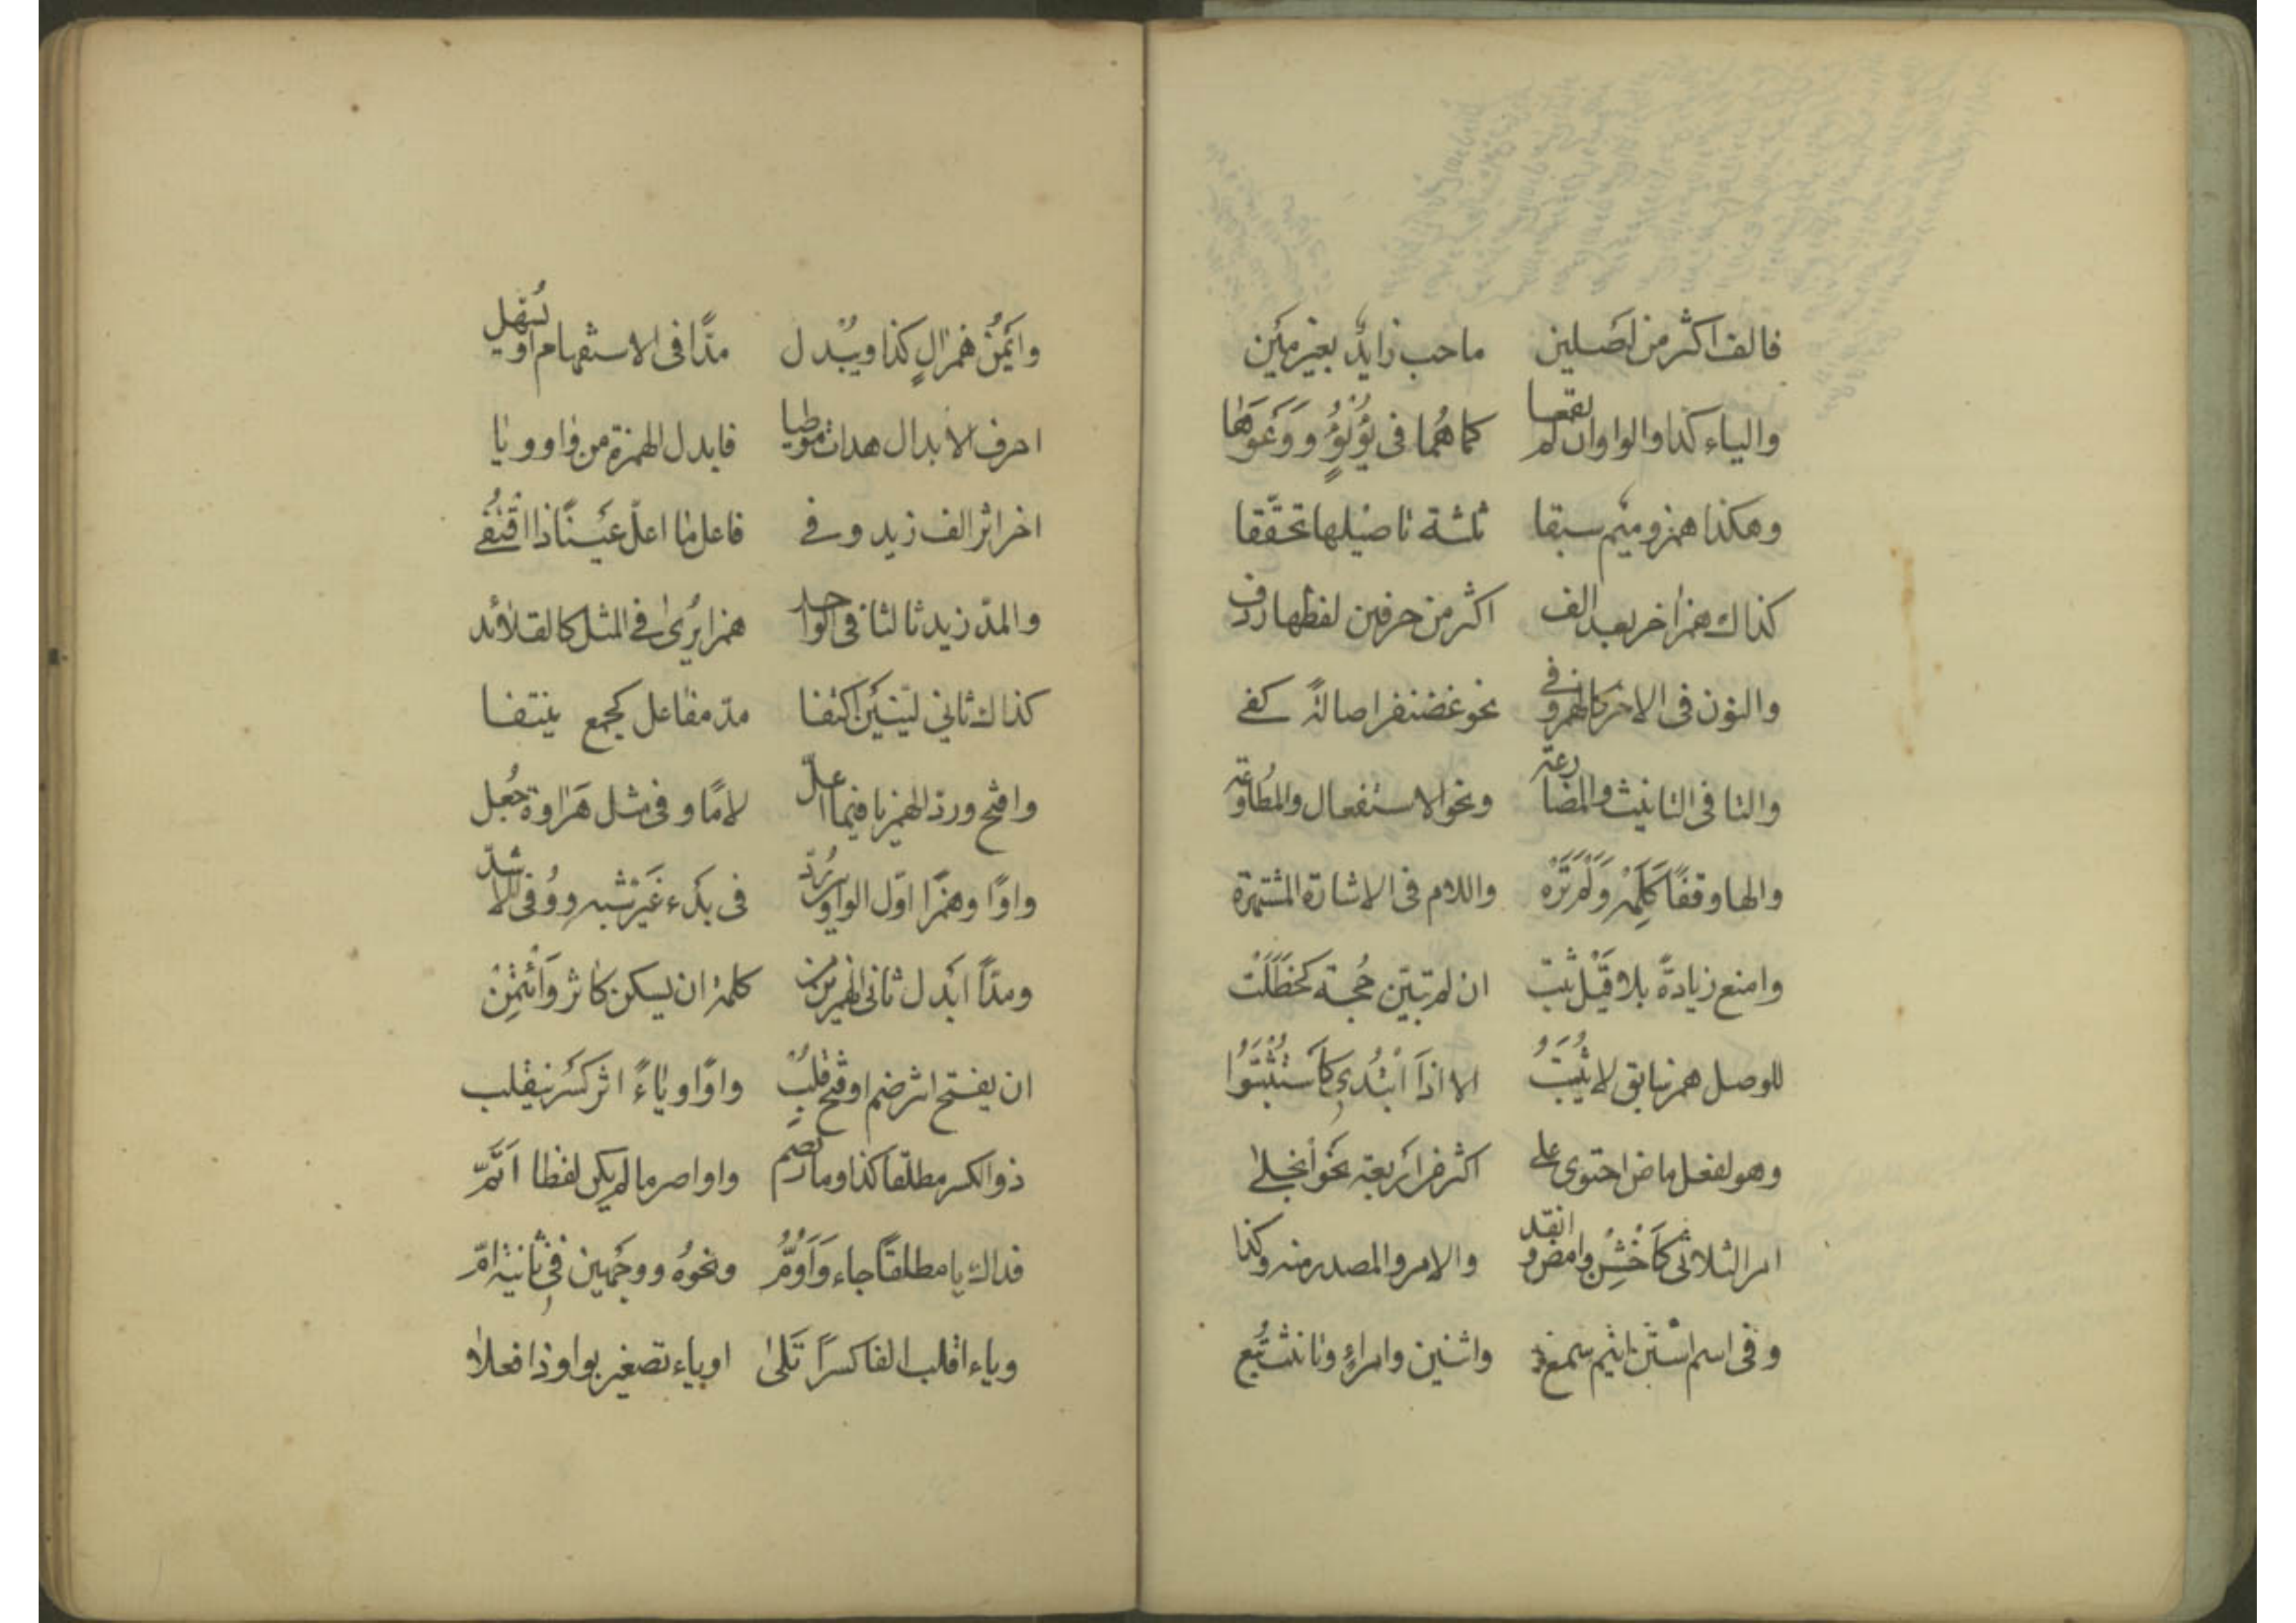 فالف اكثر من اصلين ماحب زايدٌ بغير مَيْن
والياء كذا والواو ان لم يقعا كما هُما فى يُؤْيُؤٍ ووَعْوَعَا
وهكذا همز وميم سبقا ثلثة تاصيلها تحقّقا
كذاك همز اخر بعد الف اكثر من حرفين لفظها ردف
والنون فى الاخر كالهمز وفى نحو غضنفر اصالةً كفى
والتا فى التانيث والمضارعة ونحو الاستفعال والمُطاوعة
والها وقفًا كَلِمَهْ وَلَمْ تَرَهْ واللام فى الاشارة المشتهرة
وامنع زيادةً بلا قَيْل ثبت ان لم تبيّن حُجة كحَظَلَتْ
للوصل همز سابق لا يُثبَتُ الا اذا ابْتُدِى كَاسْتُثْبِتُوا
وهو لفعل ماض احتوى على اكثر من اَربعة نحو انجلى
امر الثلاثى كَاخْشِ وامض وانفد والامر والمصدر منه وكذا
وفى اسم استٍ ابن ابنم سمع واثنين وامرءٍ وتانيث تُبع
واَيْمُنُ همز ال كذا ويُبْدل مدًّا فى الاستفهام او يُسهل
احرف الابدال هدات موطيا فابدل الهمزة من واو ويا
اخرا اثر الف زيد وفى فاعل ما اعلّ عَيْنًا ذا اقْتُفى
والمدّ زيد ثالثا فى الواحد همزا يُرى فى مثل كالقلائد
كذاك ثانى لَيّنَيْن اكتنفا مدّ مفاعل كجمع نيّفا
وافتح وردّ الهمز يا فيما اعلّ لامًا وفى مثل هَرَاوة جُعل
واوًا وهمزًا اوّل الواوين رُدّ فى بَدْء غَيْر شبه وُوفى الاشدّ
ومدًّا ابْدل ثانى الهمزين من كلمة ان يسكن كاثر وَائْتُمِنْ
ان يفتح اثر ضم او فتح قُلِبْ واوًا وياءً اثر كَسْر ينقلب
ذو الكسر مطلقا كذا وما يضم واوا اصر ما لم يكن لفظا اَتَمّ
فذاك يا مطلقًا جاء وَاَوُمُّ ونحوُه ووجْهين فى ثانيه امّ
وياء اقلب الفا كسرًا تَلى او ياء تصغير بواو ذا افعلا